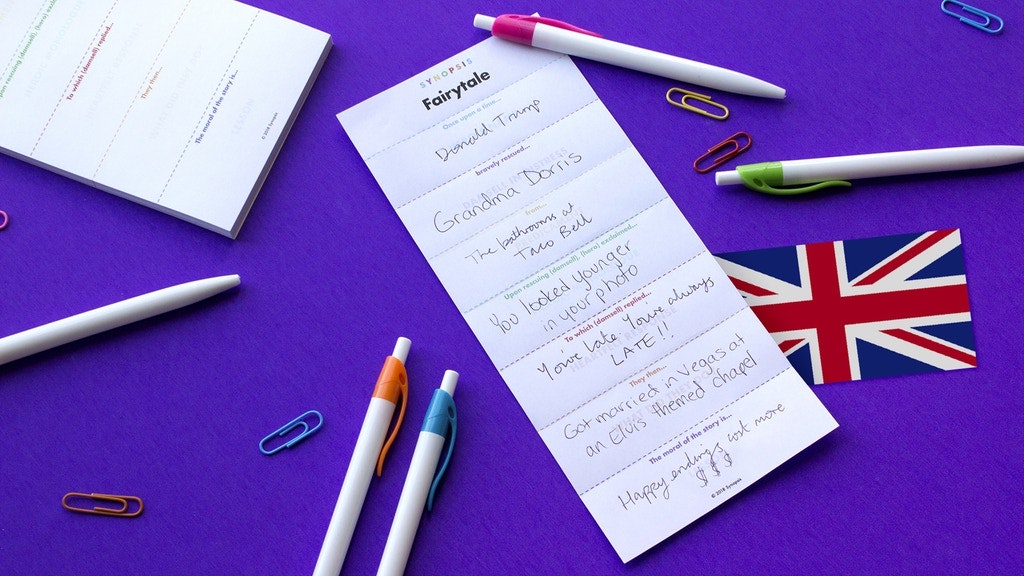 SYNOPSIS
Fairytale
Once upon a time...
Donald Trump
bravely rescued...
Grandma Dorris
from...
The bathrooms at
Taco Bell
Upon rescuing (damsel), (hero) exclaimed...
You looked younger
in your photo
To which (damsel) replied...
You're late. You're always
LATE!!
They then...
Got married in Vegas at
an Elvis themed chapel
The moral of the story is...
Happy endings cost more
$$$
© 2018 Synopsis
Upon rescuing (damsel), (hero) exclaimed...
To which (damsel) replied...
They then...
The moral of the story is...
© 2018 Synopsis